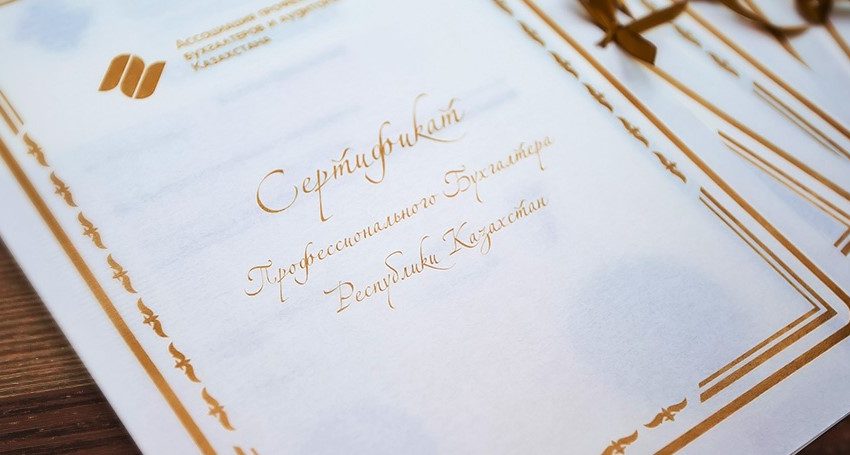 Ассоциация
Бухгалтеров и
Казахстана
Сертификат
Профессионального Бухгалтера
Республики Казахстан